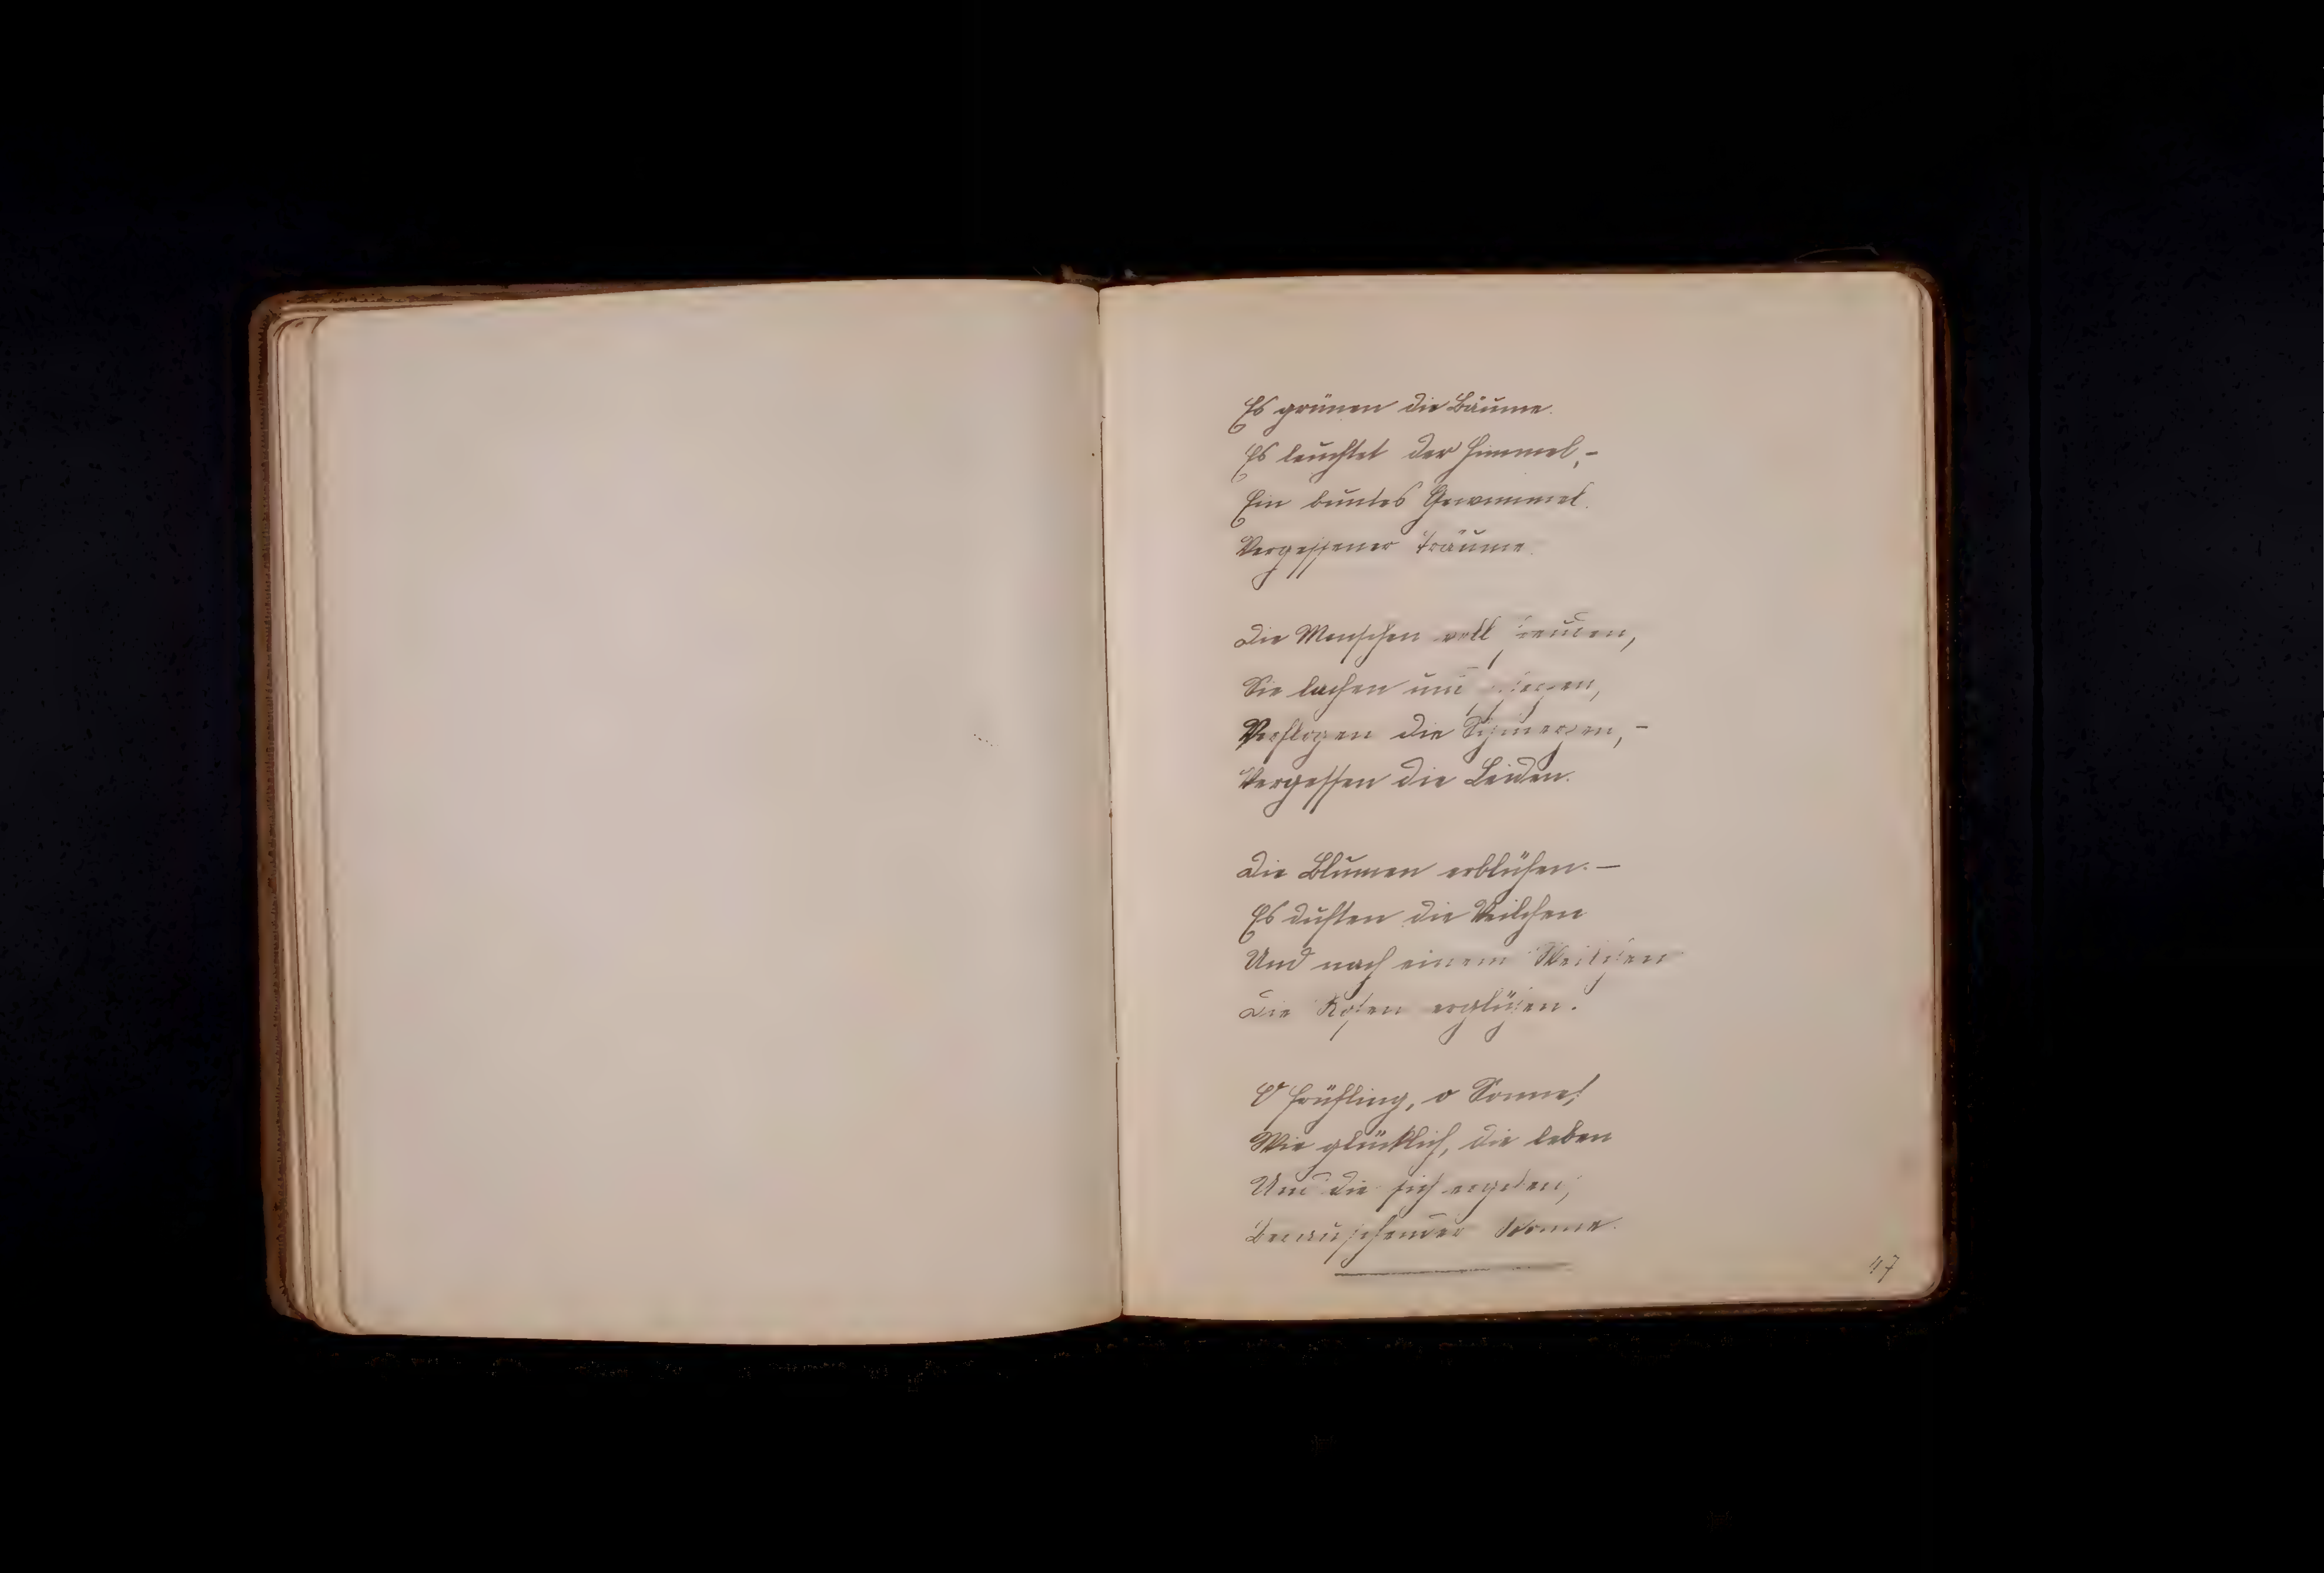 Es grünen die Bäume.
Es leuchtet der Himmel, -
Ein buntes Gewimmel.
Vergessener Träume.
Die Menschen voll Freuden,
Sie lachen und scherzen,
Verflogen die Schmerzen, -
Vergessen die Leiden.
Die Blumen erblühen. -
Es duften die Veilchen
Und nach einem Weilchen
Die Rosen erglühen.
O Frühling, o Sonne!
Wie glücklich, die leben
Und die sich ergeben,
Berauschender Wonne.
47